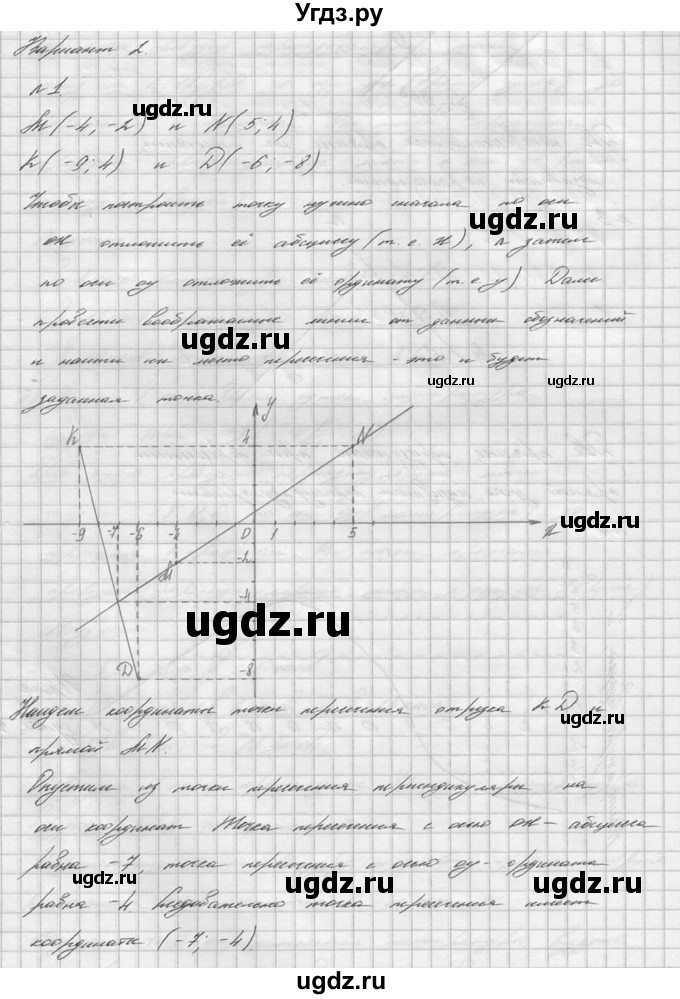 Угдз.ру
Вариант 2.
ugdz.ru
№1.
M(-4; -2) и N(5; 4)
ugdz.ru
K(-9; 4) и D(-6; -8)
Чтобы построить точку нужно сначала по оси
ugdz.ru
ох отложить её абсциссу (т.е. х), а затем
по оси оу отложить её ординату (т.е. у) Далее
провести воображаемые линии от данных обозначений
ugdz.ru
и найти их место пересечения - это и будет
ugdz.ru ugdz.ru
заданная точка.
y
K 4 N
-9 -7 -6 -4 0 1 5 x
ugdz.ru
M -2
-4
ugdz.ru
D -8
Найдем координаты точки пересечения отрезка KD и
ugdz.ru
прямой MN.
Опустим из точки пересечения перпендикуляры на
оси координат Точка пересечения с осью ох - абсцисса
равна -7, точка пересечения с осью оу - ордината
ugdz.ru ugdz.ru ugdz.ru
равна -4. Следовательно точка пересечения имеет
координаты (-7; -4)
ugdz.ru